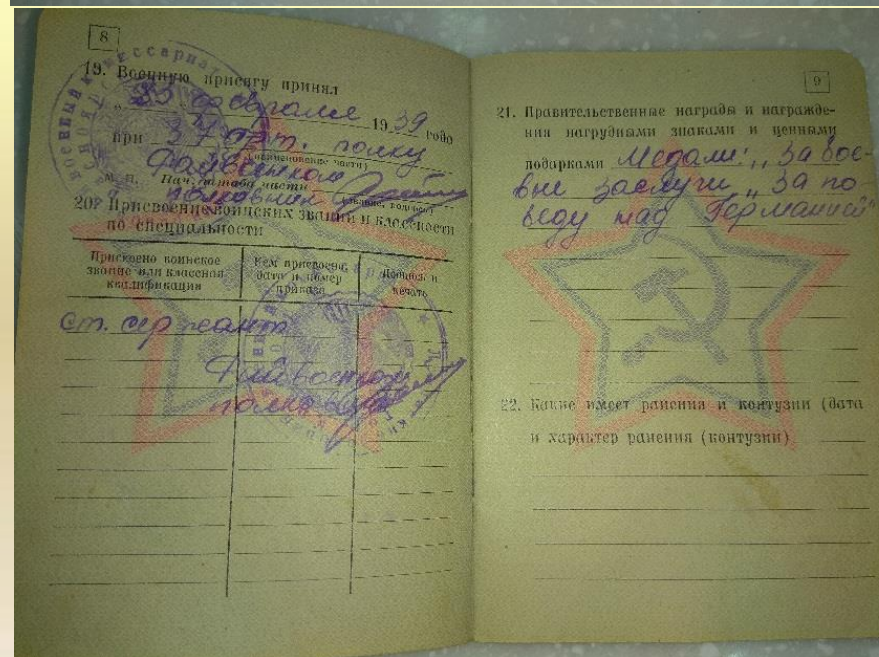 8
19. Военную присягу принял
„ 23 " февраля 1939 года
при 37 арт. полку
(наименование части)
м. п. Нач. штаба части
полковник
20. Присвоение воинских званий и классности
по специальности
Присвоено воинское звание или классная квалификация
Кем присвоено, дата и номер приказа
Подпись и печать
Ст. сержант
полковник
9
21. Правительственные награды и награжде-
ния нагрудными знаками и ценными
подарками Медали: „За бое-
вые заслуги „За по-
беду над Германией"
22. Какие имеет ранения и контузии (дата
и характер ранения (контузии)